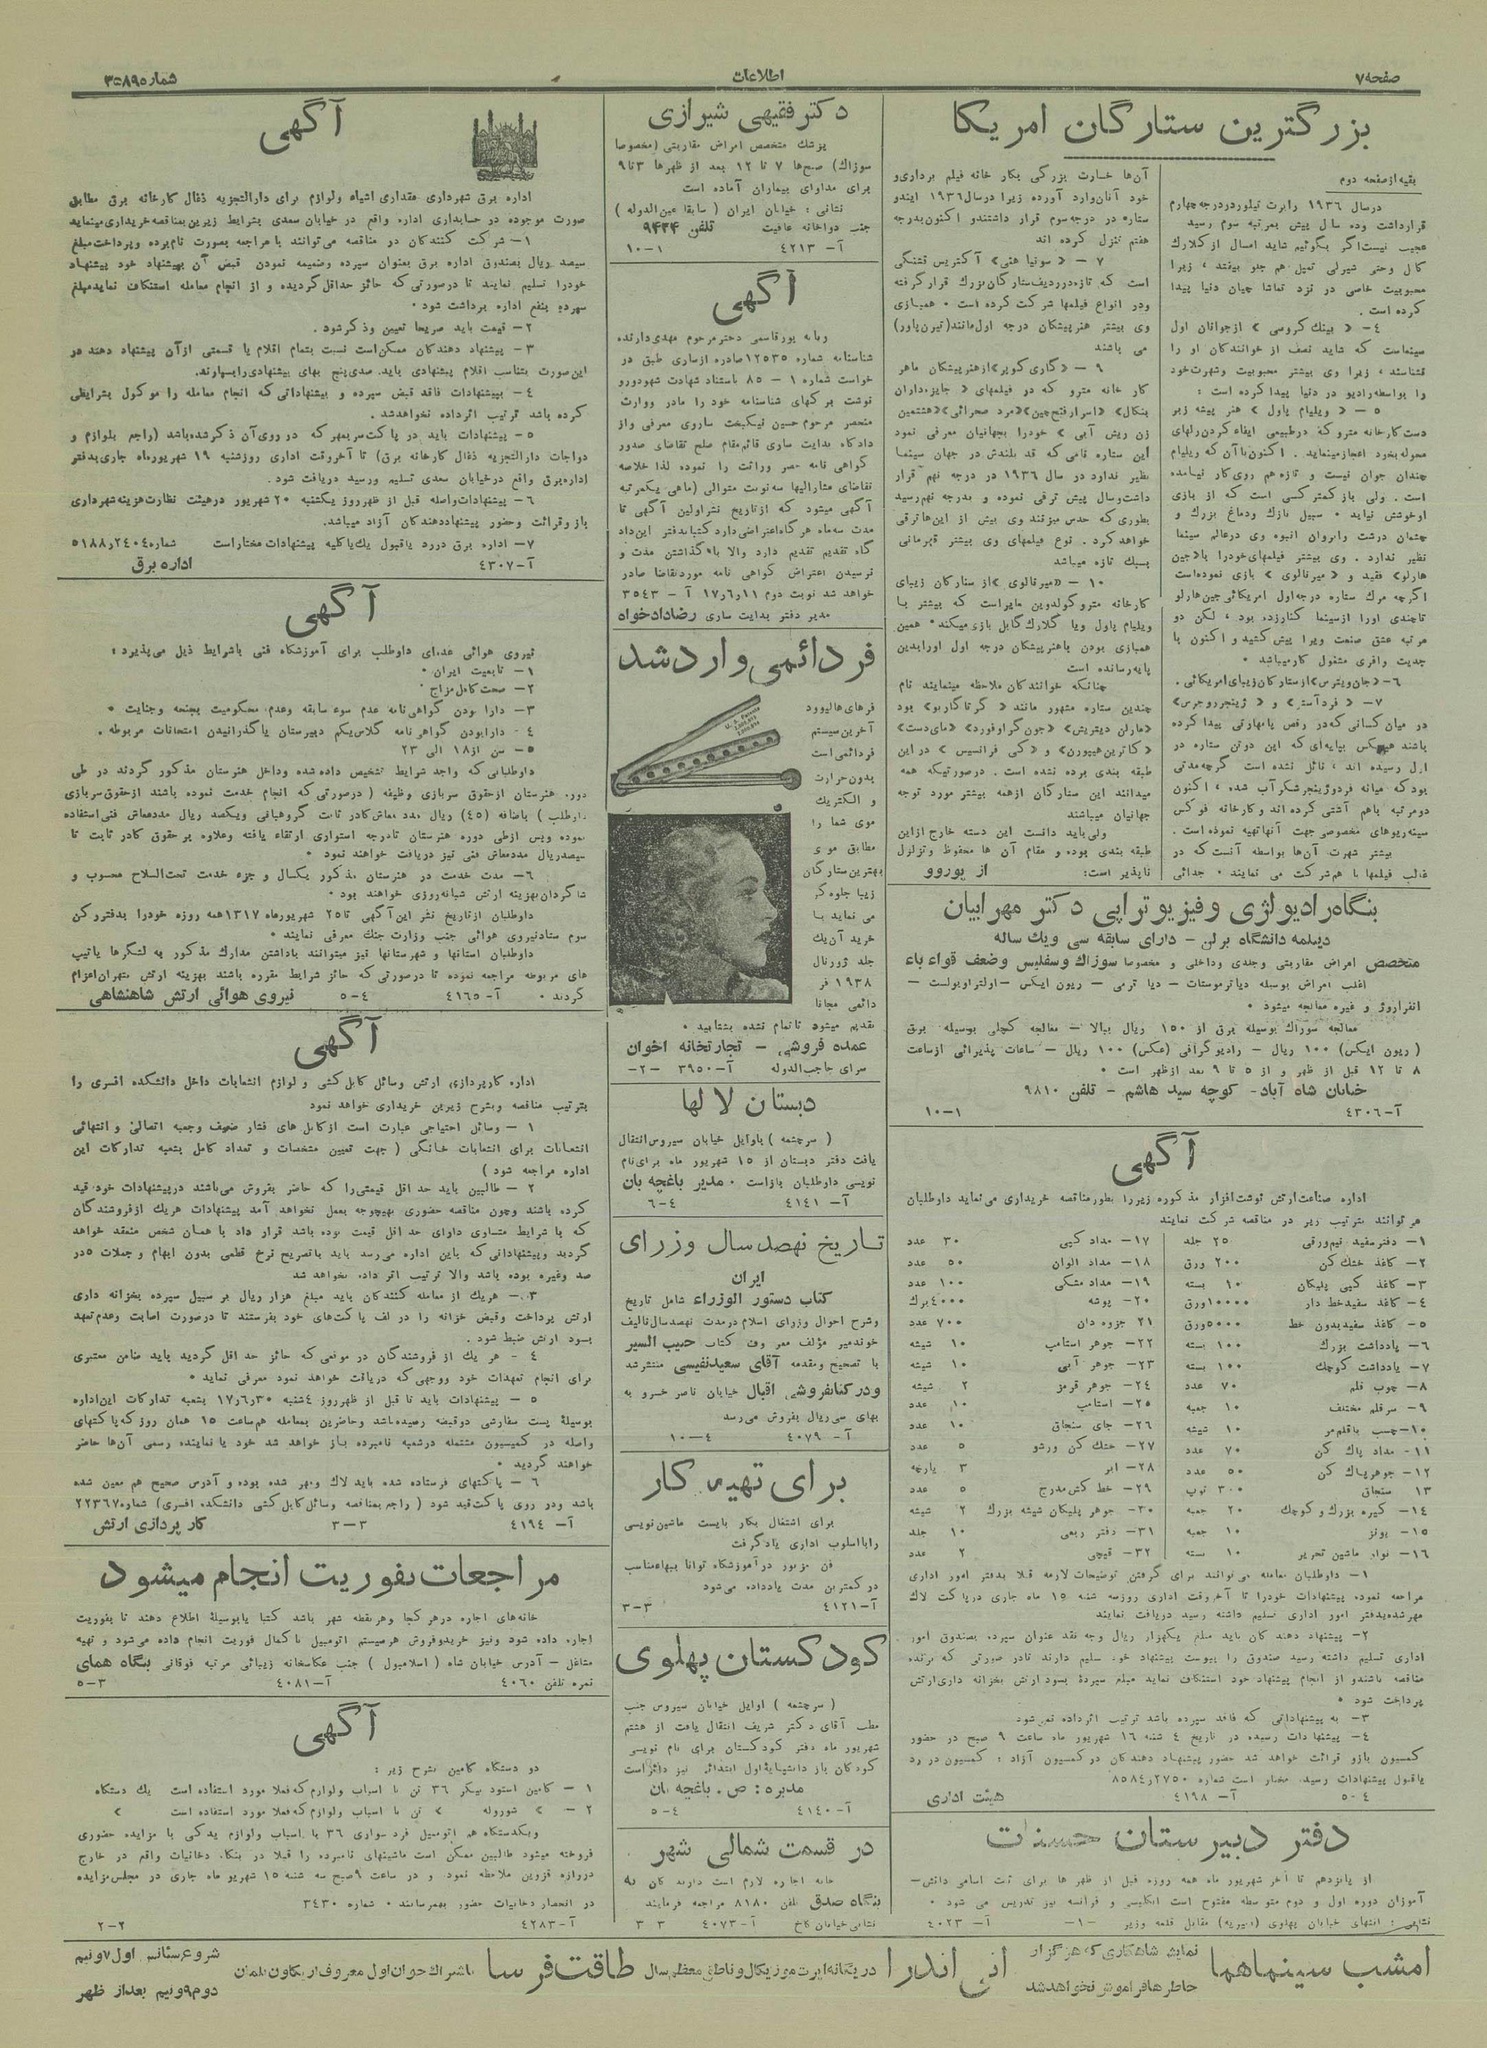 صفحه ۷
اطلاعات
شماره ۳۵۸۹
بزرگترین ستارگان امریکا
بقیه از صفحه دوم
درسال ۱۹۳۶ رابرت تیلور در درجه چهارم
قرار داشت وده سال پیش بمرتبه سوم رسید
عجیب نیست اگر بگوئیم شاید امسال از کلارك
کابل وحتی شیرلی تمپل هم جلو بیفتد ، زیرا
محبوبیت خاصی در نزد تماشا چیان دنیا پیدا
کرده است .
۴ـ « بینك کروسبی » از جوانان اول
سینماست که شاید نصف از خوانندگان او را
نشناسند ، زیرا وی بیشتر محبوبیت وشهرت خود
را بواسطه رادیو در دنیا پیدا کرده است :
۵ـ « ویلیام پاول » هنر پیشه زبر
دست کارخانه مترو که در طبیعی ایفاء کردن رلهای
محوله بخود اعجاز مینماید . اکنون با آن که ویلیام
چندان جوان نیست و تازه هم روی کار نیامده
است . ولی باز کمتر کسی است که از بازی
او خوشش نیاید ٠ سبیل نازك ودماغ بزرك و
چشمان درشت وابروان انبوه وی در عالم سینما
نظیر ندارد . وی بیشتر فیلمهای خود را با «جین
هارلو» فقید و « میرنالوی » بازی نموده است
اگرچه مرك ستاره درجه اول امریکائی جین هارلو
تاچندی اورا از سینما کنار زده بود ، لکن دو
مرتبه عشق صنعت ویرا پیش کشید و اکنون با
جدیت وافری مشغول کار میباشد ٠
۶ـ «جان ویترس» از ستارکان زیبای امریکائی .
۷ـ « فرد آستر » و « ژینجر روجرس»
در میان کسانی که در رقص یا مهارتی پیدا کرده
باشند هیچکس بپایه ای که این دوتن ستاره در
آن رسیده اند ، نائل نشده است گرچه مدتی
بود که میانه فرد و ژینجر شکر آب شده ، اکنون
دومرتبه باهم آشتی کرده اند وکارخانه فوکس
سیناریوهای مخصوصی جهت آنها تهیه نموده است .
بیشتر شهرت آن‌ها بواسطه آنست که در
غالب فیلمها با هم شرکت می نمایند ٠ جدائی
آن‌ها خسارت بزرگی بکار خانه فیلم برداری و
خود آنان وارد آورده زیرا در سال ۱۹۳۶ ایندو
ستاره در درجه سوم قرار داشتند و اکنون بدرجه
هفتم تنزل کرده اند
۷ ـ « سونیا هنی » آکتریس قشنگی
است که تازه در ردیف ستارگان بزرك قرار گرفته
ودر انواع فیلمها شرکت کرده است ٠ همبازی
وی بیشتر هنرپیشکان درجه اول مانند (تیرن پاور)
می باشند
۹ ـ «گاری کوپر» از هنرپیشکان ماهر
کار خانه مترو که در فیلمهای « جایزه داران
بنکال» «اسرار فتح چین» «مرد صحرائی» «هشتمین
زن ریش آبی » خودرا بجهانیان معرفی نمود
این ستاره نامی که قد بلندش در جهان سینما
نظیر ندارد در سال ۱۹۳۶ در درجه نهم قرار
داشت وسال پیش ترقی نموده و بدرجه نهم رسید
بطوری که حدس میزنند وی بیش از این ها ترقی
خواهد کرد . نوع فیلمهای وی بیشتر قهرمانی
بسبك تازه میباشد
۱۰ ـ «میرنالوی» از ستارکان زیبای
کارخانه مترو گولدوین مایر است که بیشتر با
ویلیام پاول ویا گلارك گابل بازی میکند ٠ همین
همبازی بودن با هنرپیشکان درجه اول اورا بدین
پایه رسانده است
چنانکه خوانندکان ملاحظه مینمایند نام
چندین ستاره مشهور مانند « گرتا گاربو » بود
«مارلن دیتریش» «جون گراوفورد» «مای وست»
« کاترین هیپورن» و «کی فرانسیس » در این
طبقه بندی برده نشده است . در صورتیکه همه
میدانند این ستارکان ازهمه بیشتر مورد توجه
جهانیان میباشند
ولی باید دانست این دسته خارج از این
طبقه بندی بوده و مقام آن ها محفوظ وتزلزل
ناپذیر است: از یوروو
بنگاه رادیولژی و فیزیوتراپی دکتر مهرابیان
دیپلمه دانشگاه برلن ـ دارای سابقه سی ویك ساله
متخصص امراض مقاربتی وجلدی وداخلی و مخصوصا سوزاك وسفلیس وضعف قواء باء
اغلب امراض بوسیله دیاترموستات ـ دیا ترمی ـ ریون ایکس ـ اولترا ویولت ـ
انفراروژ و غیره معالجه میشود ٠
معالجه سوزاك بوسیله برق از ۱۵۰ ریال ببالا ـ معالجه کچلی بوسیله برق
( ریون ایکس) ۱۰۰ ریال ـ رادیو گرافی (عکس) ۱۰۰ ریال ـ ساعات پذیرائی از ساعت
۸ تا ۱۲ قبل از ظهر و از ۵ تا ۹ بعد از ظهر است ٠
خیابان شاه آباد ـ کوچه سید هاشم ـ تلفن ۹۸۱۰
آ ـ ۴۳۰۶
۱ ـ ۱۰
آگهی
اداره صناعت ارتش نوشت افزار مذکوره زیر را بطور مناقصه خریداری می نماید داوطلبان
می توانند بترتیب زیر در مناقصه شرکت نمایند
۱ـ دفتر مفید نیم ورقی ۲۵ جلد
۲ـ کاغذ خشك کن ۲۰۰ ورق
۳ـ کاغذ کپی پلیکان ۱۰ بسته
۴ـ کاغذ سفید خط دار ۱۰۰۰۰ ورق
۵ـ کاغذ سفید بدون خط ۵۰۰۰ ورق
۶ـ یادداشت بزرك ۱۰۰ بسته
۷ـ یادداشت کوچك ۱۰۰ بسته
۸ـ چوب قلم ۷۰ عدد
۹ـ سرقلم مختلف ۱۰ جعبه
۱۰ـ چسب باقلم مو ۱۰ شیشه
۱۱ـ مداد پاك کن ۷۰ عدد
۱۲ـ جوهر پاك کن ۵۰ عدد
۱۳ سنجاق ۳۰۰ توپ
۱۴ـ گیره بزرك و کوچك ۲۰ جعبه
۱۵ـ پونز ۱۰ جعبه
۱۶ـ نوار ماشین تحریر ۱۰ بسته
۱۷ـ مداد کپی ۳۰ عدد
۱۸ـ مداد الوان ۵۰ عدد
۱۹ـ مداد مشکی ۱۰۰ عدد
۲۰ـ پوشه ۴۰۰۰ برك
۲۱ جزوه دان ۷۰۰ عدد
۲۲ـ جوهر استامپ ۱۰ شیشه
۲۳ـ جوهر آبی ۱۰ شیشه
۲۴ـ جوهر قرمز ۲ شیشه
۲۵ـ استامپ ۱۰ عدد
۲۶ـ جای سنجاق ۱۰ عدد
۲۷ـ خشك کن ورشو ۵ عدد
۲۸ـ ابر ۳ پارچه
۲۹ـ خط کش مدرج ۵ عدد
۳۰ـ جوهر پلیکان شیشه بزرك ۲ شیشه
۳۱ـ دفتر ربعی ۱۰ جلد
۳۲ـ قیچی ۲ عدد
۱ـ داوطلبان معامله می توانند برای گرفتن توضیحات لازمه قبلا بدفتر امور اداری
مراجعه نموده پیشنهادات خودرا تا آخر وقت اداری روز سه شنبه ۱۵ ماه جاری در پاکت لاك
مهر شده بدفتر امور اداری تسلیم داشته رسید دریافت نمایند
۲ـ پیشنهاد دهند کان باید مبلغ یکهزار ریال وجه نقد عنوان سپرده بصندوق امور
اداری تسلیم داشته رسید صندوق را پیوست پیشنهاد خود تسلیم دارند تا در صورتی که برنده
مناقصه باشند و از انجام پیشنهاد خود استنکاف نماید مبلغ سپرده بسود ارتش بخزانه داری ارتش
پرداخت شود ٠
۳ـ به پیشنهاداتی که فاقد سپرده باشد ترتیب اثر داده نمی شود
۴ـ پیشنهادات رسیده در تاریخ ۴ شنبه ۱۶ شهریور ماه ساعت ۹ صبح در حضور
کمسیون بازو قرائت خواهد شد حضور پیشنهاد دهندکان در کمسیون آزاد : کمسیون در رد
یا قبول پیشنهادات رسیده مختار است شماره ۸۵۸۴٫۲۷۵۰
۴ ـ ۵ آ ـ ۴۱۹۸ هیئت اداری
دفتر دبیرستان حسنات
از پانزدهم تا آخر شهریور ماه همه روزه قبل از ظهر ها برای ثبت اسامی دانش ـ
آموزان دوره اول و دوم متوسطه مفتوح است انگلیسی و فرانسه نیز تدریس می شود ٠
نشانی : انتهای خیابان پهلوی (امیریه) مقابل قلعه وزیر ـ۱ـ آ ـ ۴۰۲۳
دکتر فقیهی شیرازی
پزشك متخصص امراض مقاربتی (مخصوصا
سوزاك) صبح‌ها ۷ تا ۱۲ بعد از ظهرها ۳ تا ۹
برای مداوای بیماران آماده است
نشانی : خیابان ایران ( سابقا عین الدوله )
جنب دواخانه عافیت تلفن ۹۴۳۴
آ ـ ۴۲۱۳ ۱ ـ ۱۰
آگهی
ربابه پورقاسمی دختر مرحوم مهدی دارنده
شناسنامه شماره ۱۲۵۳۵ صادره از ساری طبق در
خواست شماره ۱ ـ ۸۵ باستناد شهادت شهود و رو
نوشت برکهای شناسنامه خود را مادر ووارث
منحصر مرحوم حسین نیکبخت ساروی معرفی واز
دادکاه بدایت ساری قائم مقام صلح تقاضای صدور
گواهی نامه حصر وراثت را نموده لذا خلاصه
تقاضای مشارالیها سه نوبت متوالی (ماهی یکمرتبه
آگهی میشود که از تاریخ نشر اولین آگهی تا
مدت سه ماه هر گاه اعتراضی دارد کتبا بدفتر این داد
گاه تقدیم تقدیم دارد والا با گذاشتن مدت و
نرسیدن اعتراض گواهی نامه مورد تقاضا صادر
خواهد شد نوبت دوم ۱۷٫۶٫۱۱ آ ـ ۳۵۴۳
مدیر دفتر بدایت ساری رضا دادخواه
فر دائمی وارد شد
فرهای هالیوود
آخرین سیستم
فر دائمی است
بدون حرارت
و الکتریك
موی شما را
مطابق موی
بهترین ستارگان
زیبا جلوه گر
می نماید با
خرید آن یك
جلد ژورنال
۱۹۳۸ فر
دائمی مجانا
تقدیم میشود تا تمام نشده بشتابید ٠
عمده فروشی ـ تجارتخانه اخوان
سرای حاجب الدوله آ ـ ۳۹۵۰ ـ۲ـ
دبستان لالها
( سرچشمه ) باوایل خیابان سیروس انتقال
یافت دفتر دبستان از ۱۵ شهریور ماه برای نام
نویسی داوطلبان باز است ٠ مدیر باغچه بان
آ ـ ۴۱۴۱ ۴ ـ ۶
تاریخ نهصد سال وزرای
ایران
کتاب دستور الوزراء شامل تاریخ
وشرح احوال وزرای اسلام در مدت نهصد سال تالیف
خوندمیر مؤلف معروف کتاب حبیب السیر
با تصحیح ومقدمه آقای سعید نفیسی منتشر شد
ودر کتابفروشی اقبال خیابان ناصر خسرو به
بهای سی ریال بفروش می رسد
آ ـ ۴۰۷۹ ۴ ـ ۱۰
برای تهیه کار
برای اشتغال بکار بایست ماشین نویسی
را با اسلوب اداری یاد گرفت
فن مزبور در آموزشگاه توانا ببهاء مناسب
در کمترین مدت یاد داده می‌شود
آ ـ ۴۱۲۱ ۳ ـ ۳
کودکستان پهلوی
( سرچشمه ) اوایل خیابان سیروس جنب
مطب آقای دکتر شریف انتقال یافت از هشتم
شهریور ماه دفتر کودکستان برای نام نویسی
کودکان باز
مدیره : ص . باغچه بان
آ ـ ۴۱۴۰ ۴ ـ ۵
در قسمت شمالی شهر
خانه اجاره لازم است دارندکان به
بنگاه صدق تلفن ۸۱۸۰ مراجعه فرمایند
نشانی خیابان کاخ آ ـ ۴۰۷۳ ۳ ۳
آگهی
اداره برق شهرداری مقداری اشیاء ولوازم برای دارالتجزیه ذغال کارخانه برق مطابق
صورت موجوده در حسابداری اداره واقع در خیابان سعدی بشرایط زیرین بمناقصه خریداری مینماید
۱ـ شرکت کنندکان در مناقصه می‌توانند با مراجعه بصورت نامبرده وپرداخت مبلغ
سیصد ریال بصندوق اداره برق بعنوان سپرده وضمیمه نمودن قبض آن بپیشنهاد خود پیشنهاد
خودرا تسلیم نمایند تا درصورتی که حائز حداقل گردیده و از انجام معامله استنکاف نماید مبلغ
سپرده بنفع اداره برداشت شود ٠
۲ـ قیمت باید صریحا تعیین وذکر شود .
۳ـ پیشنهاد دهندکان ممکن است نسبت بتمام اقلام یا قسمتی از آن پیشنهاد دهند در
این صورت بتناسب اقلام پیشنهادی باید. صدی پنج بهای پیشنهادی را بسپارند.
۴ـ پیشنهادات فاقد قبض سپرده و پیشنهاداتی که انجام معامله را موکول بشرایطی
کرده باشد ترتیب اثر داده نخواهد شد .
۵ـ پیشنهادات باید در پاکت سر بمهر که در روی آن ذکر شده باشد (راجع بلوازم و
دواجات دارالتجزیه ذغال کارخانه برق) تا آخر وقت اداری روز شنبه ۱۹ شهریور ماه جاری بدفتر
اداره برق واقع در خیابان سعدی تسلیم ورسید دریافت شود .
۶ـ پیشنهادات واصله قبل از ظهر روز یکشنبه ۲۰ شهریور در هیئت نظارت هزینه شهرداری
باز وقرائت وحضور پیشنهاد دهندکان آزاد میباشد.
۷ـ اداره برق در رد یا قبول یك یا کلیه پیشنهادات مختار است شماره ۵۱۸۸٫۲۴۰۴
آ ـ ۴۳۰۷ اداره برق
آگهی
نیروی هوائی عده‌ای داوطلب برای آموزشگاه فنی باشرایط ذیل می‌پذیرد :
۱ـ تابعیت ایران ٠
۲ـ صحت کامل مزاج ٠
۳ـ دارا بودن گواهی نامه عدم سوء سابقه وعدم محکومیت بجنحه وجنایت ٠
۴ـ دارا بودن گواهی نامه کلاس یکم دبیرستان یا گذرانیدن امتحانات مربوطه .
۵ـ سن از ۱۸ الی ۲۳
داوطلبانی که واجد شرایط تشخیص داده شده وداخل هنرستان مذکور گردند در طی
دوره هنرستان از حقوق سربازی وظیفه ( در صورتی که انجام خدمت نموده باشند از حقوق سربازی
داوطلب ) باضافه (۴۵) ریال مدد معاش کادر ثابت گروهبانی ویکصد ریال مدد معاش فنی استفاده
نموده وپس از طی دوره هنرستان تا درجه استواری ارتقاء یافته وعلاوه بر حقوق کادر ثابت تا
سیصد ریال مدد معاش فنی نیز دریافت خواهند نمود ٠
۶ـ مدت خدمت در هنرستان مذکور یکسال و جزء خدمت تحت السلاح محسوب و
شاگردان بهزینه ارتش شبانه روزی خواهند بود ٠
داوطلبان از تاریخ نشر این آگهی تا ۲۵ شهریور ماه ۱۳۱۷ همه روزه خودرا بدفتر رکن
سوم ستاد نیروی هوائی جنب وزارت جنك معرفی نمایند ٠
داوطلبان استانها و شهرستانها نیز میتوانند با داشتن مدارك مذکور به لشگرها یا تیپ
های مربوطه مراجعه نموده تا درصورتی که حائز شرایط مقرره باشند بهزینه ارتش بتهران اعزام
گردند ٠ آ ـ ۴۱۶۵ ۴ ـ ۵ نیروی هوائی ارتش شاهنشاهی
آگهی
اداره کارپردازی ارتش وسائل کابل کشی و لوازم انشعابات داخل دانشکده افسری را
بترتیب مناقصه وبشرح زیرین خریداری خواهد نمود
۱ ـ وسائل احتیاجی عبارت است از کابل های فشار ضعیف وجعبه اتصالی و انتهائی
انشعابات برای انشعابات خانگی ( جهت تعیین مشخصات و تعداد کامل بشعبه تدارکات این
اداره مراجعه شود )
۲ ـ طالبین باید حد اقل قیمتی را که حاضر بفروش می‌باشند در پیشنهادات خود قید
کرده باشند وچون مناقصه حضوری بهیچوجه بعمل نخواهد آمد پیشنهادات هریك از فروشندگان
که با شرایط متساوی دارای حد اقل قیمت بوده باشد قرار داد با همان شخص منعقد خواهد
گردید وپیشنهاداتی که باین اداره می‌رسد باید با تصریح نرخ قطعی بدون ابهام و جملات ۵ در
صد وغیره بوده باشد والا ترتیب اثر داده نخواهد شد
۳ـ هریك از معامله کنندکان باید مبلغ هزار ریال بر سبیل سپرده بخزانه داری
ارتش پرداخت وقبض خزانه را در لف پاکت‌های خود بفرستند تا درصورت اصابت وعدم تعهد
بسود ارتش ضبط شود .
۴ ـ هر یك از فروشندگان در موقعی که حائز حد اقل گردید باید ضامن معتبری
برای انجام تعهدات خود ووجهی که دریافت خواهد نمود معرفی نماید ٠
۵ ـ پیشنهادات باید تا قبل از ظهر روز ۴ شنبه ۱۷٫۶٫۳۰ بشعبه تدارکات این اداره
بوسیله پست سفارشی دوقبضه رسیده باشد وحاضرین بمعامله هم ساعت ۱۵ همان روز که پاکتهای
واصله در کمیسیون متشکله در شعبه نامبرده باز خواهد شد خود یا نماینده رسمی آن‌ها حاضر
خواهند گردید ٠
۶ ـ پاکتهای فرستاده شده باید لاك ومهر شده بوده و آدرس صحیح هم معین شده
باشد ودر روی پاکت قید شود ( راجع بمناقصه وسائل کابل کشی دانشکده افسری) شماره ۲۲۳۶۷
آ ـ ۴۱۹۴ ۳ ـ ۳ کار پردازی ارتش
مراجعات بفوریت انجام میشود
خانه‌های اجاره در هر کجا وهر نقطه شهر باشد کتبا یا بوسیله اطلاع دهند تا بفوریت
اجاره داده شود ونیز خرید و فروش هر سیستم اتومبیل با کمال فوریت انجام داده می‌شود و تهیه
مشاغل ـ آدرس خیابان شاه ( اسلامبول ) جنب عکاسخانه زیبائی مرتبه فوقانی بنگاه همای
نمره تلفن ۴۰۶۰ آ ـ ۴۰۸۱ ۳ ـ ۵
آگهی
دو دستگاه کامین بشرح زیر :
۱ ـ کامین استود بیکر ۳۶ تن با اسباب ولوازم که فعلا مورد استفاده است یك دستگاه
۲ ـ » شورولە » تن با اسباب ولوازم که فعلا مورد استفاده است »
ویکدستگاه هم اتومبیل فرد سواری ۳۶ با اسباب ولوازم یدکی با مزایده حضوری
فروخته میشود طالبین ممکن است ماشینهای نامبرده را قبلا در بنگاه دخانیات واقع در خارج
دروازه قزوین ملاحظه نموده و در ساعت ۹ صبح سه شنبه ۱۵ شهریور ماه جاری در مجلس مزایده
در انحصار دخانیات حضور بهمرسانند ٠ شماره ۳۴۳۰
آ ـ ۴۲۸۳ ۲ ـ ۲
امشب سینما هما
نمایش شاهکاری که هرگز از
خاطرها فراموش نخواهد شد
انی اندرا در یگانه اپرت موزیکال و ناطق معظم سال طاقت فرسا باشتراك جوان اول معروف
شروع سئانس اول ۷ ونیم
دوم ۹ ونیم بعد از ظهر